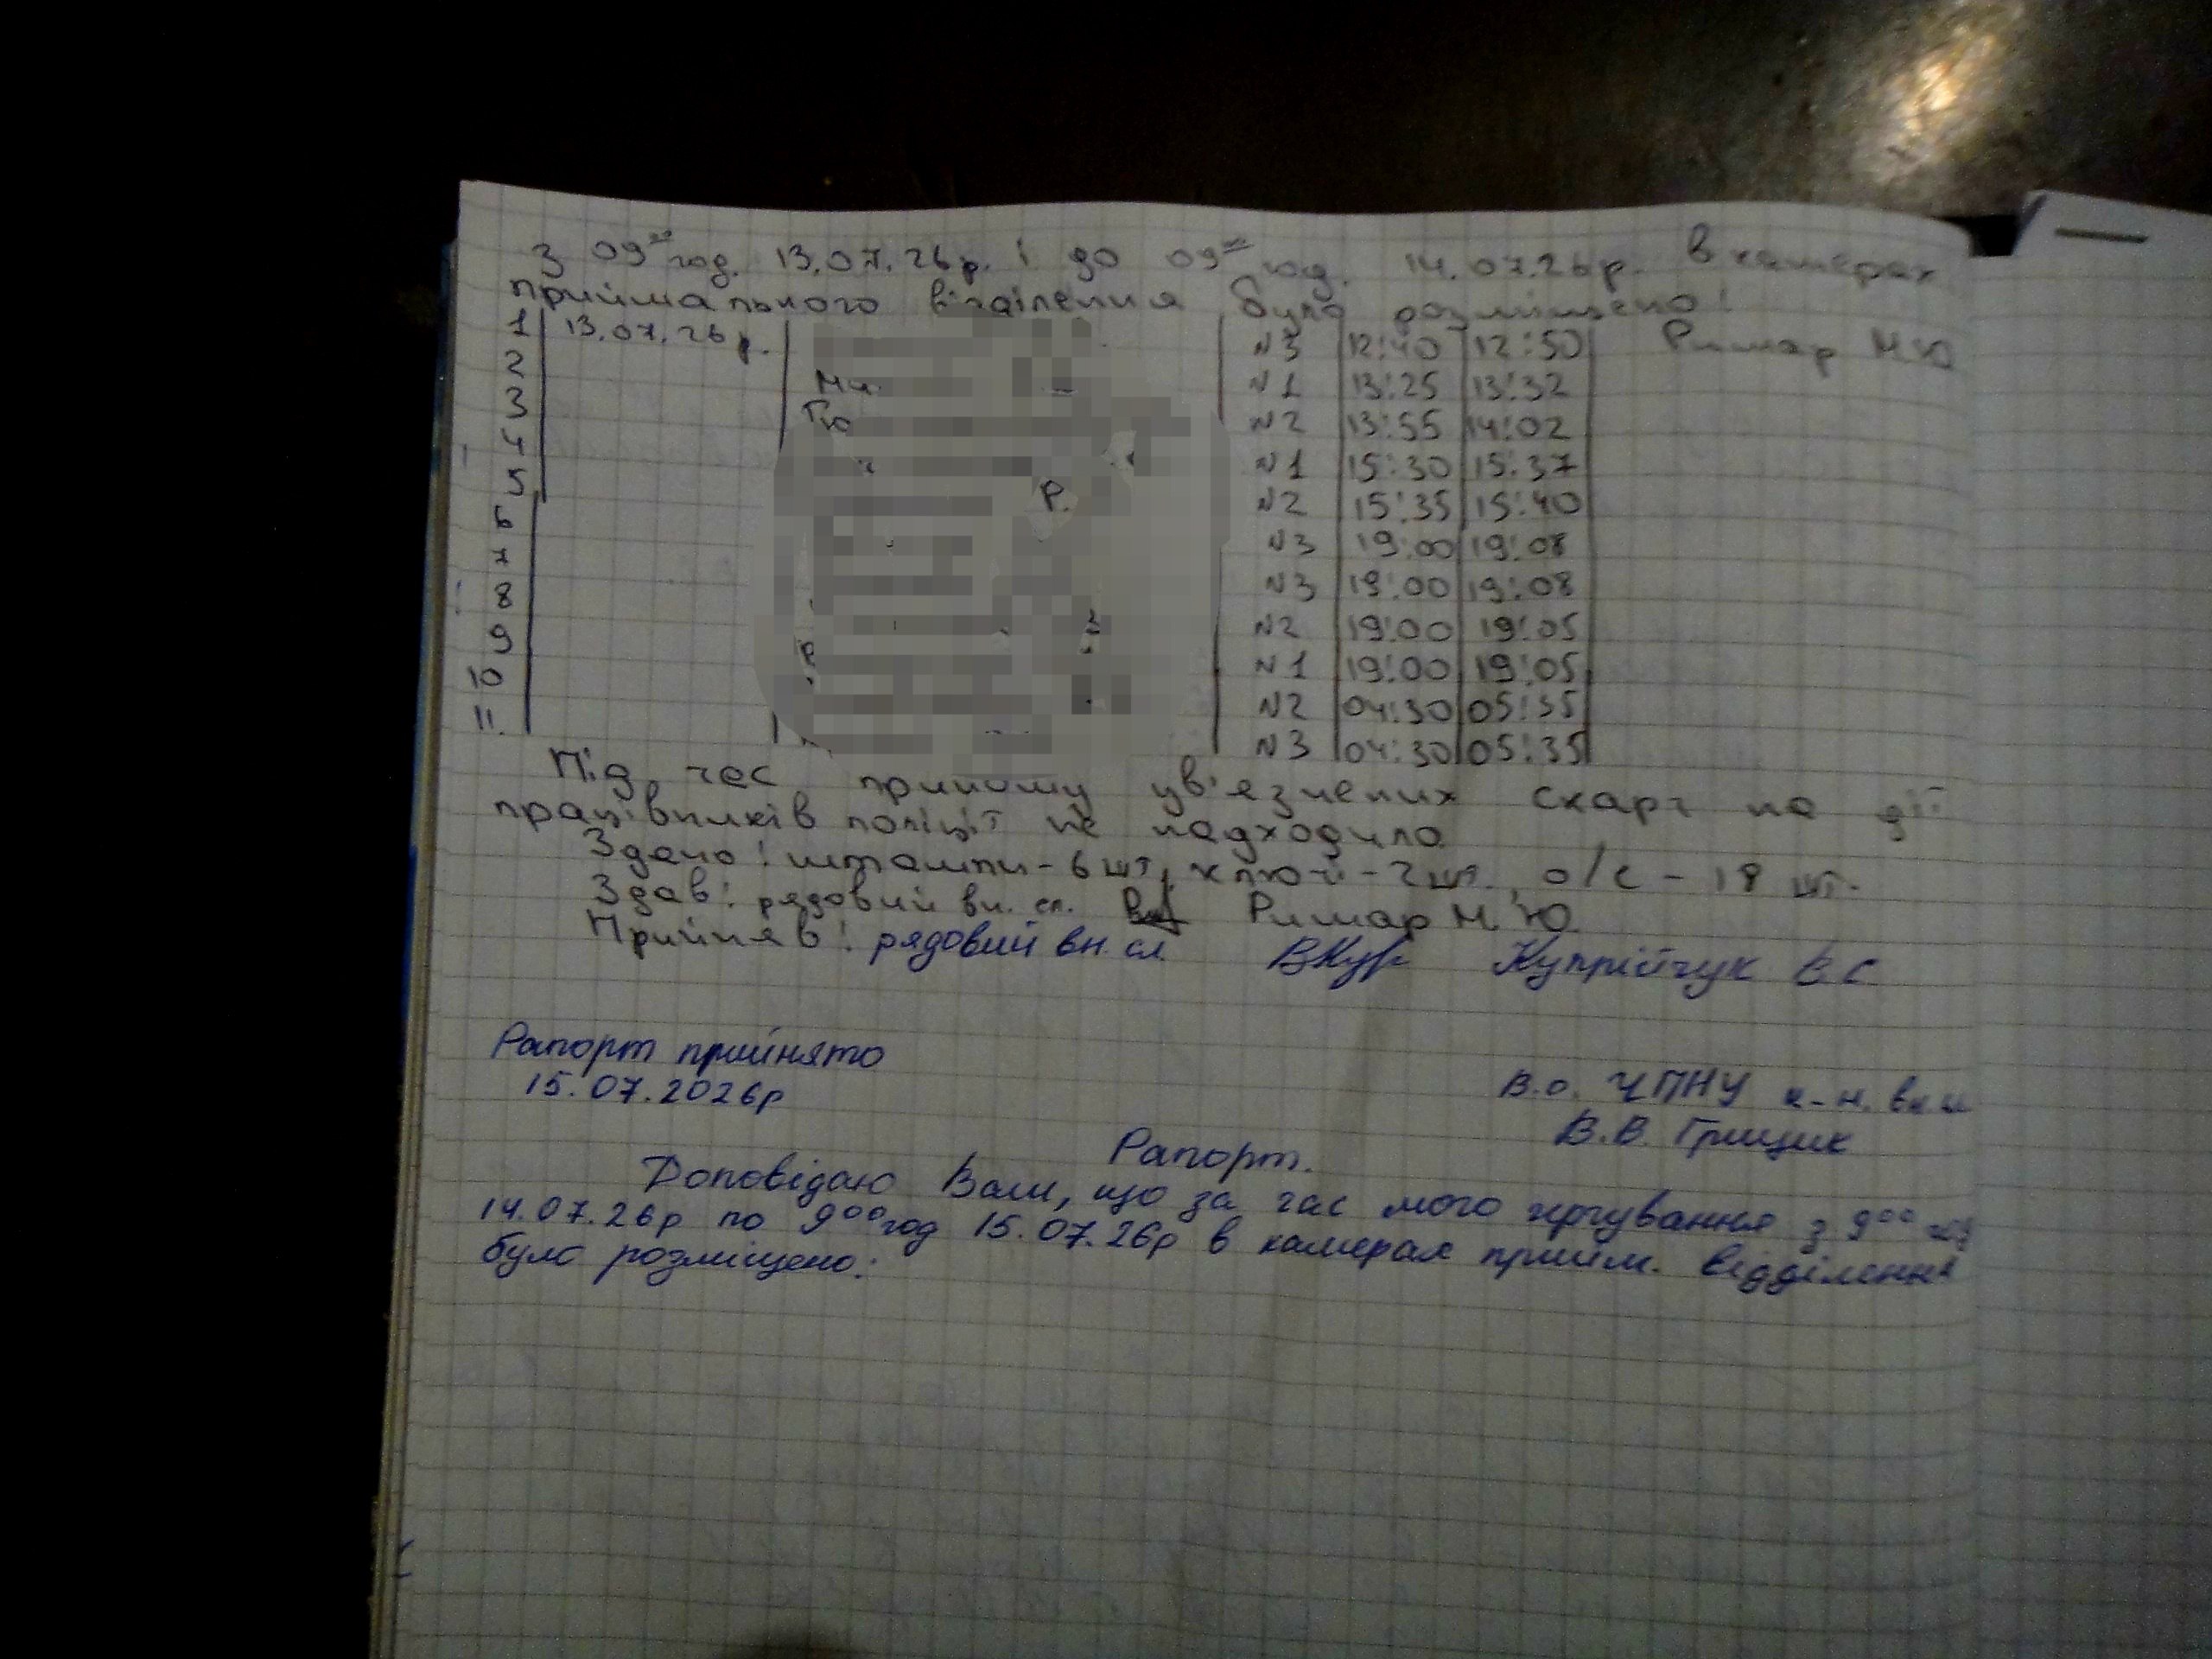 З 09⁰⁰ год. 13.07.26р. і до 09⁰⁰ год. 14.07.26р. в камерах
приймального відділення було розміщено:
1 13.07.26р. N3 12:40 12:50 Римар М.Ю
2 N1 13:25 13:32
3 N2 13:55 14:02
4 N1 15:30 15:37
5 Р. N2 15:35 15:40
6 N3 19:00 19:08
7 N3 19:00 19:08
8 N2 19:00 19:05
9 N1 19:00 19:05
10 N2 04:30 05:35
11. N3 04:30 05:35
Під час прийому ув'язнених скарг на дії
працівників поліції не надходило.
Здано: штампи - 6 шт, ключі - 2 шт., о/с - 18 шт.
Здав: рядовий вн. сл. Римар М.Ю.
Прийняв: рядовий вн. сл. Купрійчук В С
Рапорт прийнято
15.07.2026р
В.о. ЧПНУ к-н. вн.
В.В. Грищик
Рапорт.
Доповідаю Вам, що за час мого чергування з 9⁰⁰ год
14.07.26р по 9⁰⁰ год 15.07.26р в камерах прийм. відділення
було розміщено: